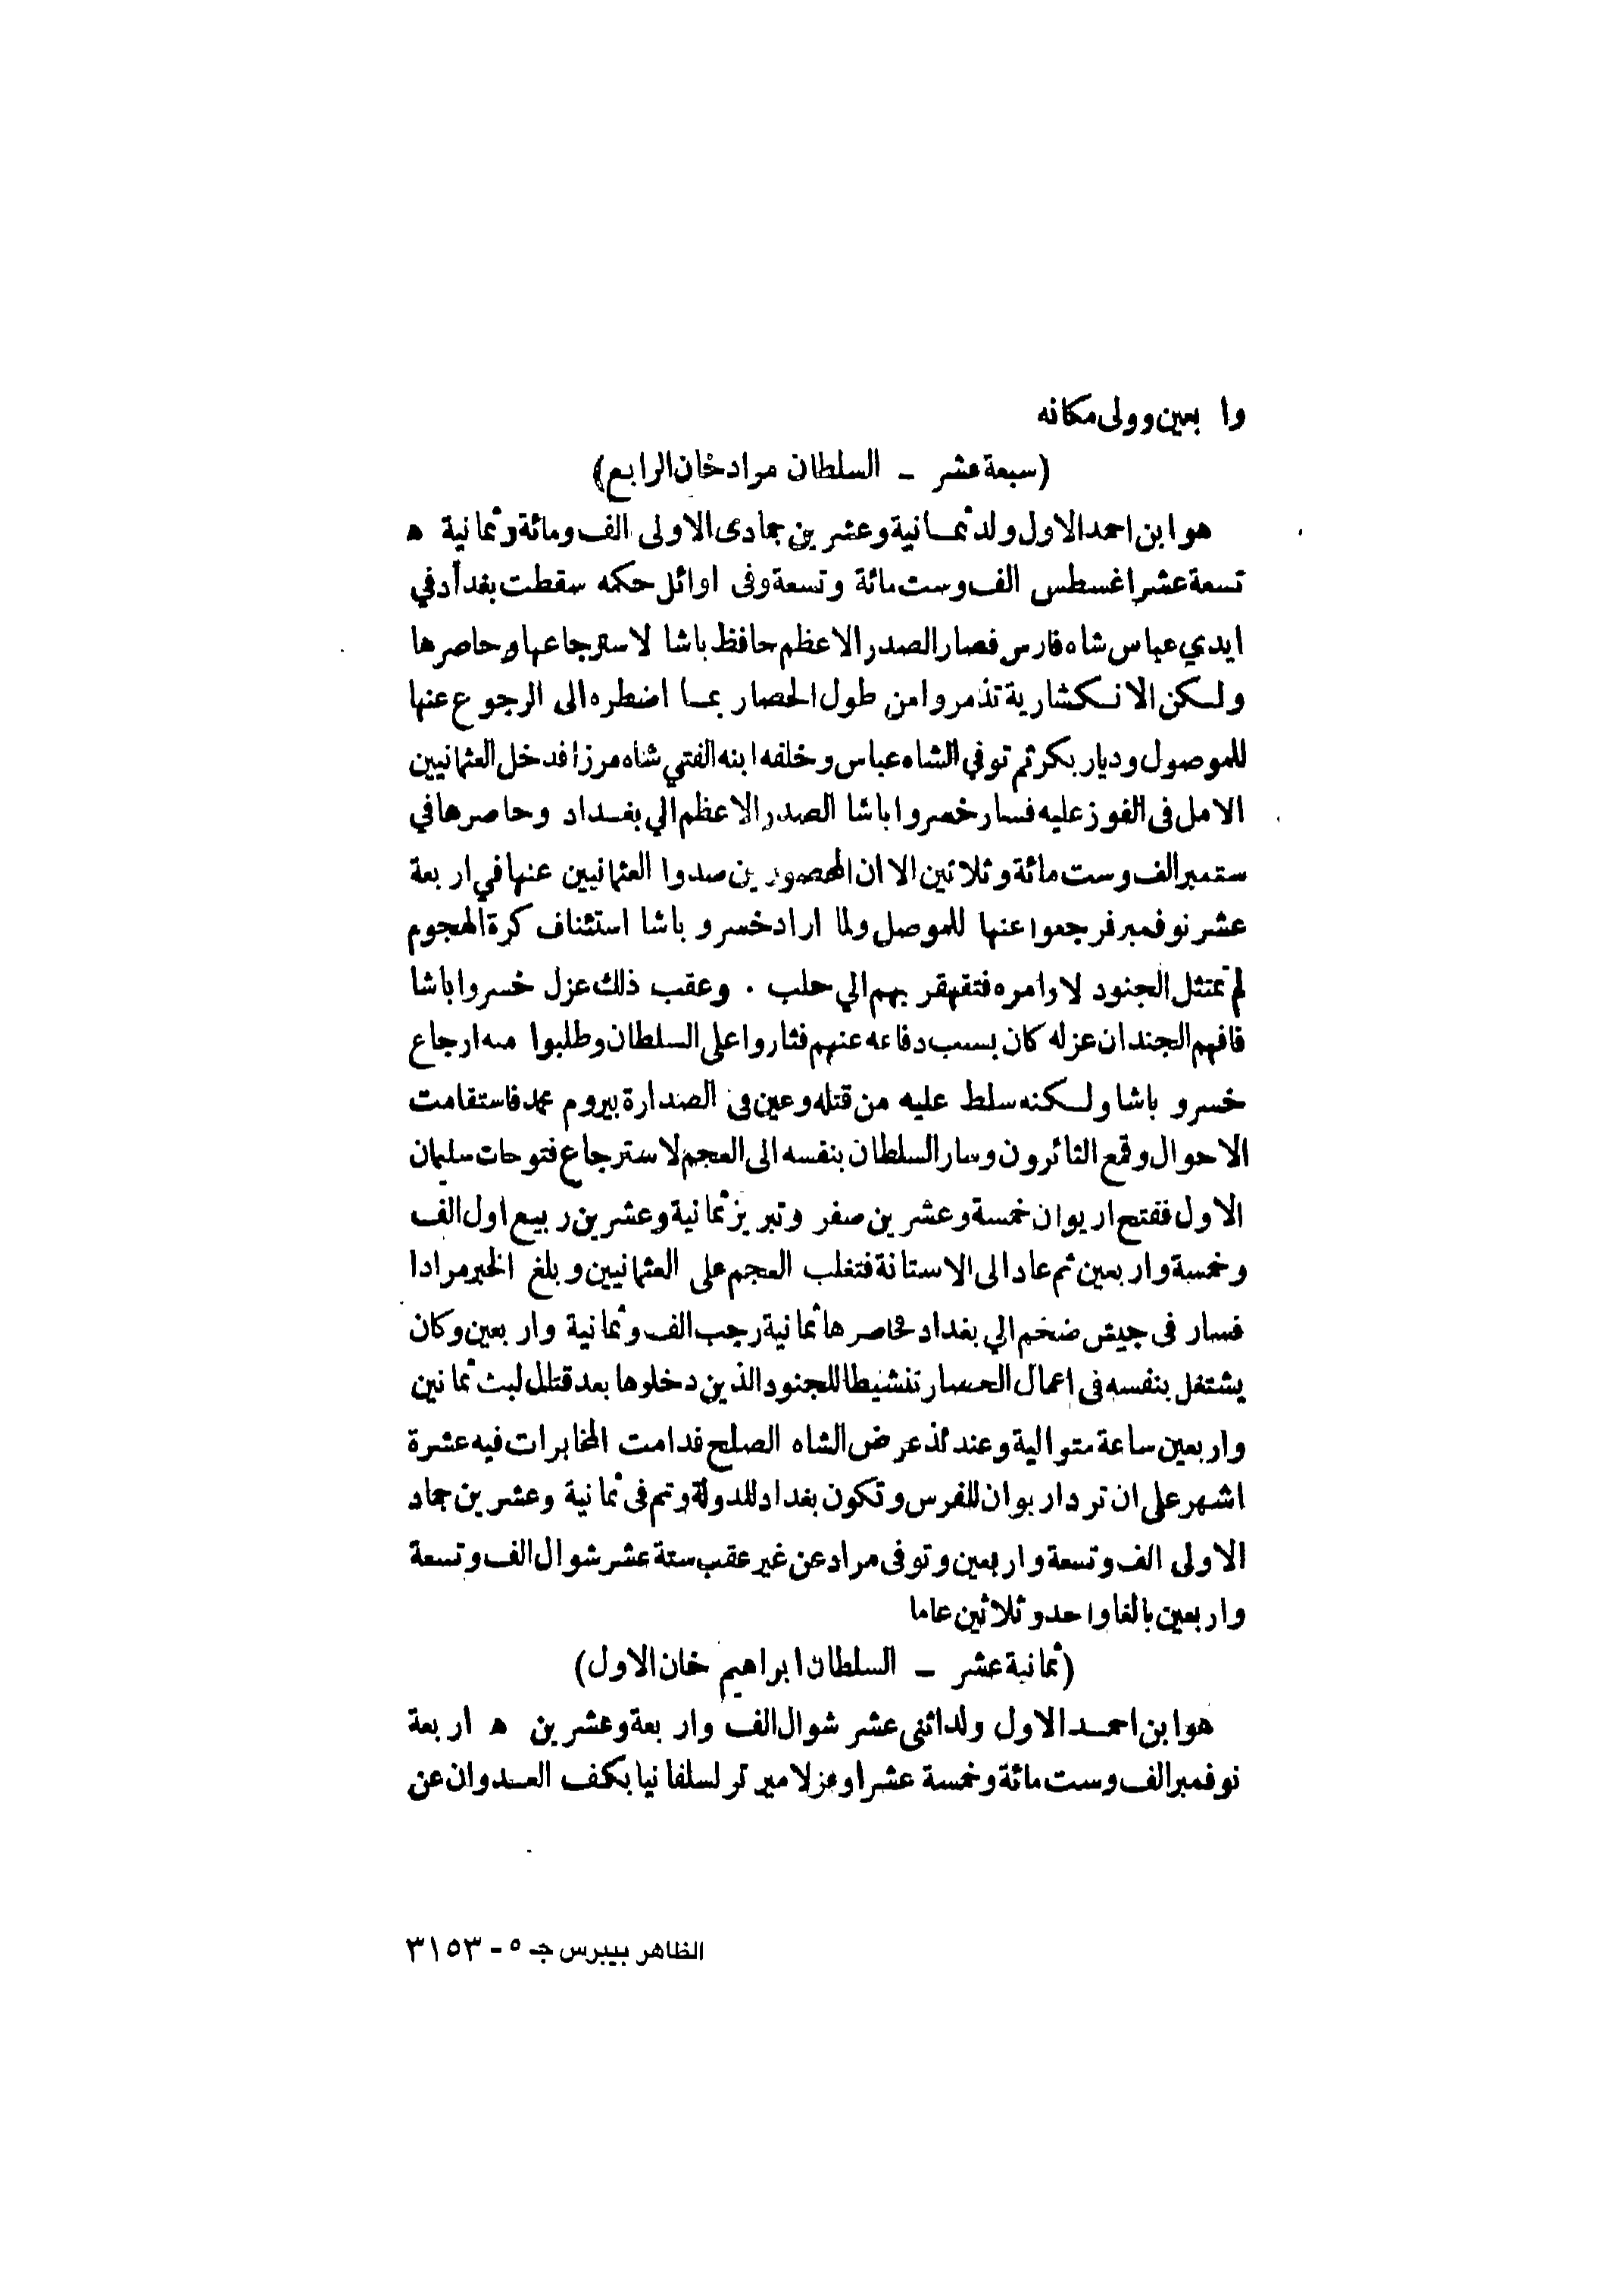 وا بعين وولى مكانه
(سبعة عشر – السلطان مراد خان الرابع)
هو ابن احمد الاول ولد ثمانية وعشرين جمادى الاولى الف ومائة وثمانية ه
تسعة عشر اغسطس الف وست مائة وتسعة وفى اوائل حكمه سقطت بغداد في
ايدي عباس شاه فارس فصار الصدر الاعظم حافظ باشا لاسترجاعها وحاصرها
ولكن الانكشارية تذمروا من طول الحصار بما اضطره الى الرجوع عنها
للموصول وديار بكر ثم توفي الشاه عباس وخلفه ابنه الفتي شاه مرزا فدخل العثمانيين
الامل فى الفوز عليه فسار خسروا باشا الصدر الاعظم الي بغداد وحاصرها في
ستمبر الف وست مائة وثلاثين الا ان المحصورين صدوا العثمانيين عنها في اربعة
عشر نوفمبر فرجعوا عنها للموصل ولما اراد خسرو باشا استئناف كرة الهجوم
لم تمتثل الجنود لاوامره فتقهقر بهم الي حلب . وعقب ذلك عزل خسروا باشا
فافهم الجند ان عزله كان بسبب دفاعه عنهم فثاروا على السلطان وطلبوا منه ارجاع
خسرو باشا ولكنه سلط عليه من قتله وعين فى الصدارة بيروم محمد فاستقامت
الاحوال وقمع الثائرون وسار السلطان بنفسه الى العجم لاسترجاع فتوحات سليمان
الاول ففتح اريوان خمسة وعشرين صفر وتبريز ثمانية وعشرين ربيع اول الف
وخمسة واربعين ثم عاد الى الاستانة فتغلب العجم على العثمانيين وبلغ الخبر مرادا
فسار فى جيش ضخم الي بغداد فحاصرها ثمانية رجب الف وثمانية واربعين وكان
يشتغل بنفسه فى اعمال الحسار تنشيطا للجنود الذين دخلوها بعد قتلل لبث ثمانين
واربعين ساعة متوالية وعندئذ عرض الشاه الصلح فدامت المخابرات فيه عشرة
اشهر على ان ترد اريوان للفرس وتكون بغداد للدولة وتم فى ثمانية وعشرين جماد
الاولى الف وتسعة واربعين وتوفى مراد عن غير عقب ستة عشر شوال الف وتسعة
واربعين بالغا واحد وثلاثين عاما
(ثمانية عشر – السلطان ابراهيم خان الاول)
هو ابن احمد الاول ولد اثنى عشر شوال الف واربعة وعشرين ه اربعة
نوفمبر الف وست مائة وخمسة عشر اوعز لامير ترلسلفانيا بكف العدوان عن
الظاهر بيبرس جـ ٥ - ٣١٥٣